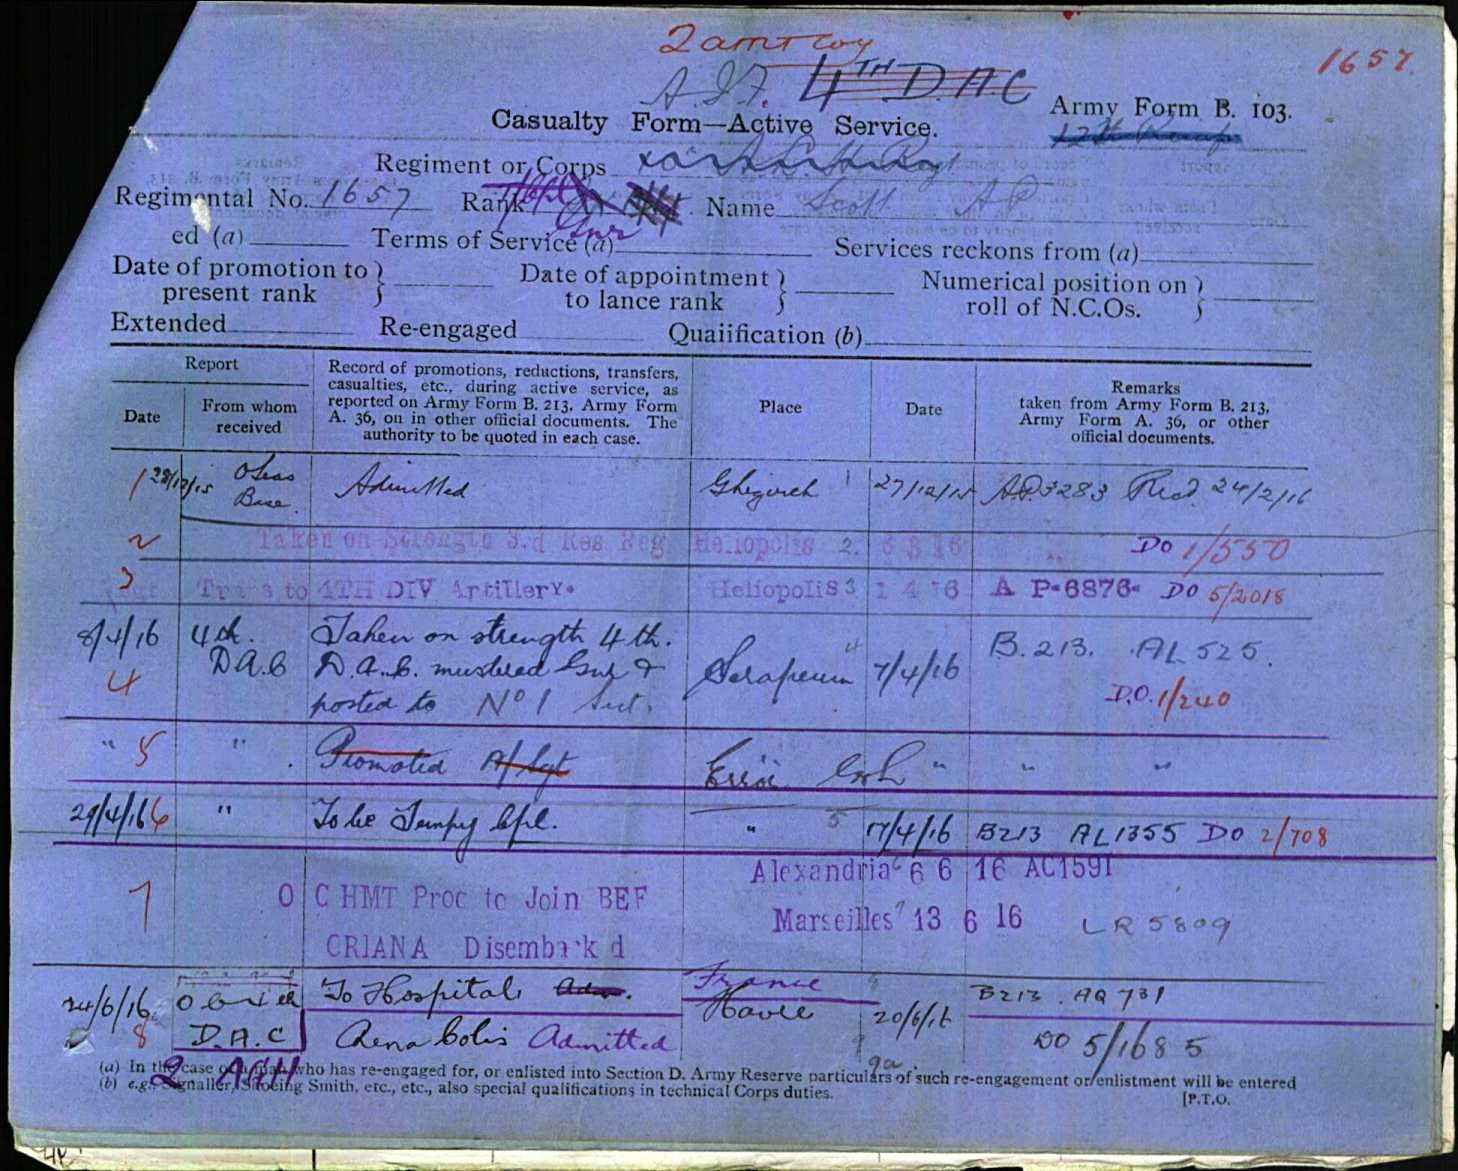 1657
A.I.F. 4TH D.A.C
Army Form B. 103.
Casualty Form—Active Service.
Regiment or Corps
Regimental No. 1657 Rank Gnr Name Scott A P
ed (a) Terms of Service (a) Services reckons from (a)
Date of promotion to present rank
Date of appointment to lance rank
Numerical position on roll of N.C.Os.
Extended Re-engaged Quaiification (b)
Report
Date
From whom received
Record of promotions, reductions, transfers, casualties, etc., during active service, as reported on Army Form B. 213, Army Form A. 36, ou in other official documents. The authority to be quoted in each case.
Place
Date
Remarks
taken from Army Form B. 213, Army Form A. 36, or other official documents.
1 28/12/15 Base. Admitted 1 27/12/15 3283 Recd 24/2/16
2 Taken on Strength 3rd Res Reg Heliopolis 2. 6 3 16 DO 1/550
3 Trans to 4TH DIV Artillery. Heliopolis 3 1 4 16 A P-6876- DO 5/2018
8/4/16 4th. D.A.C Taken on strength 4th. D.A.C. mustered Gnr & posted to No 1 Sect. Serapeum 4 7/4/16 B.213. AL 525.
4 D.O. 1/240
" 5 " Promoted A/Sgt Error " " "
29/4/16 6 " To be Tempy Cpl. " 5 17/4/16 B213 AL1355 DO 2/708
Alexandria 6 6 6 16 AC1591
7 O C HMT Proc to Join BEF
Marseilles 7 13 6 16 LR 5809
ORIANA Disembark d
24/6/16 8 D.A.C To Hospital France Havre 8 20/6/16 B213. AQ 731
Rena Colic Admitted 9 9a DO 5/1685
(a) In the case of a man who has re-engaged for, or enlisted into Section D. Army Reserve particulars of such re-engagement or enlistment will be entered
(b) e.g. Signaller, Shoeing Smith, etc., etc., also special qualifications in technical Corps duties.
[P.T.O.